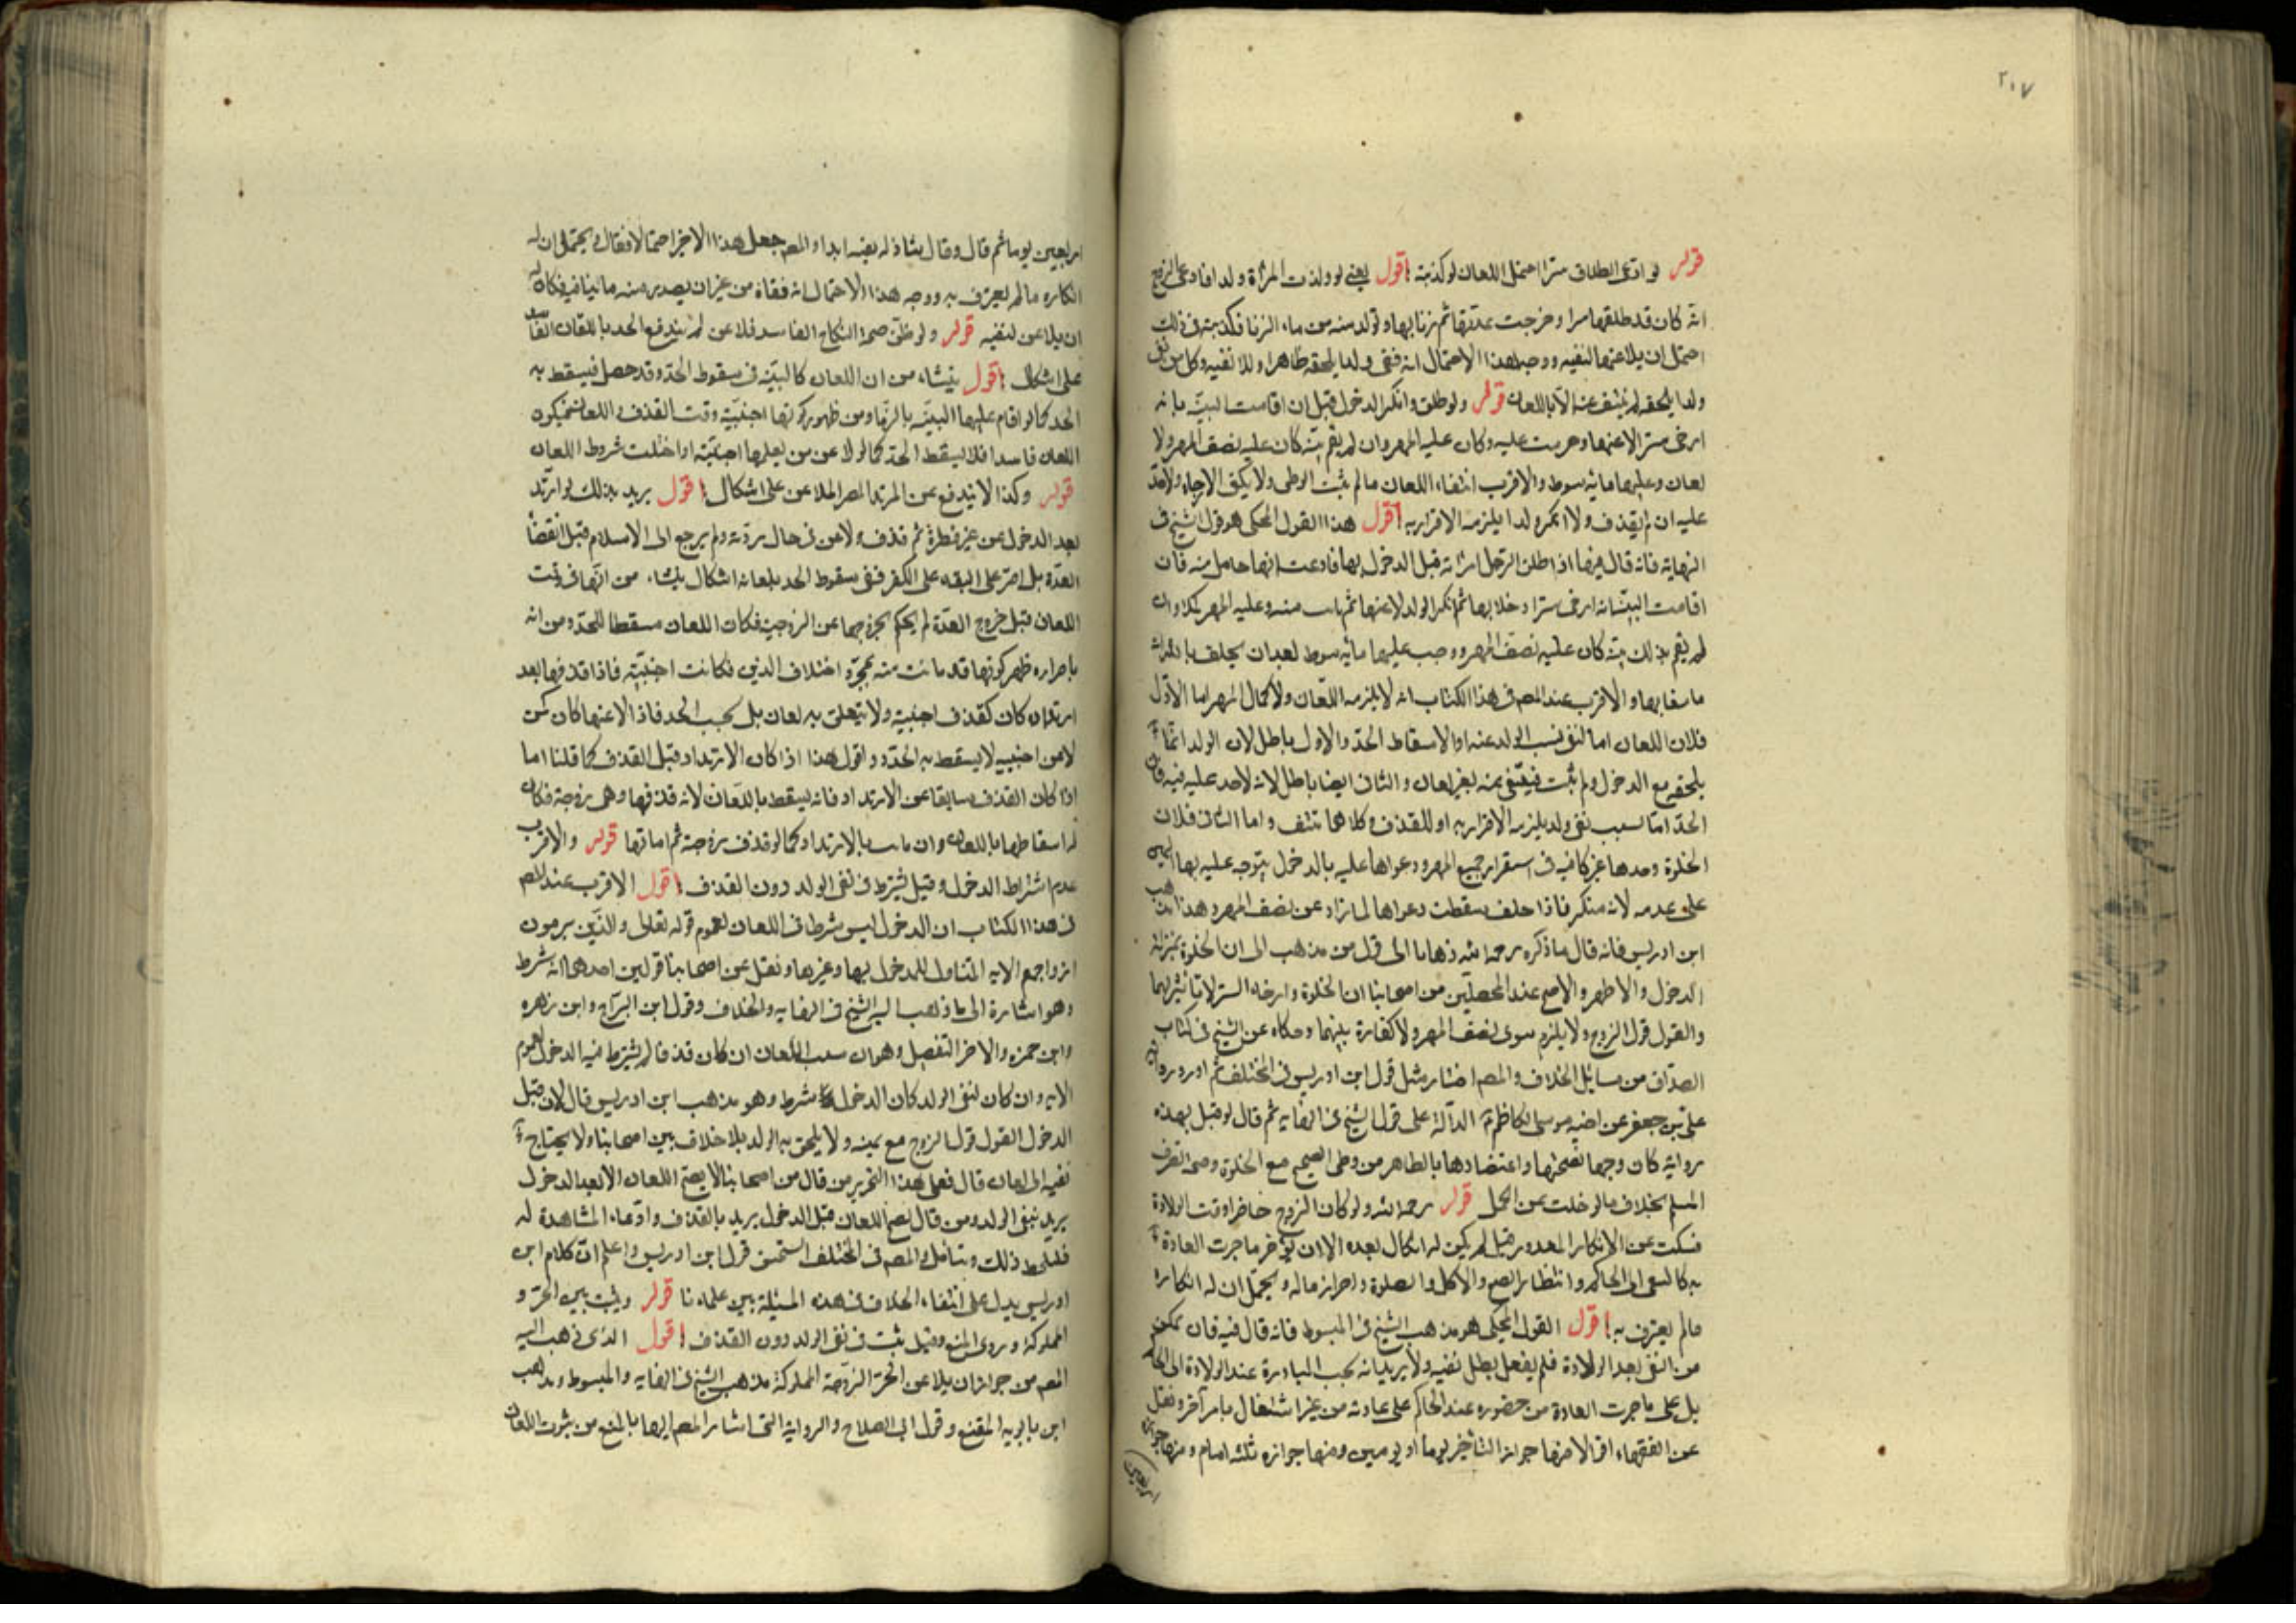 ٢١٧
قوله لو ادعى الطلاق سرا احتمل اللعان لو كذبته اقول يعني لو ولدت المرأة ولدا فادعى الزوج
انه كان قد طلقها سرا وخرجت عدتها ثم زنا بها وتولد منه من ماء الزنا فكذبته في ذلك
احتمل ان يلاعنها لنفيه ووجه هذا الاحتمال انه نفى ولدا يلحقه ظاهرا ولا نفيه وكل من نفى
ولدا يلحقه لم ينتف عنه الا باللعان قوله ولو طلق وانكر الدخول قيل ان اقامت البينة بانه
ارخى سترا لاعنها وحرمت عليه وكان عليه المهر وان لم يقم بينة كان عليه نصف المهر ولا
لعان وعليها مائة سوط والاقرب انتفاء اللعان ما لم يثبت الوطي ولا يكفي الارخاء ولا حد
عليه ان لم يقذف ولا انكر ولدا يلزمه الاقرار به اقول هذا القول المحكي هو قول الشيخ في
النهاية فانه قال فيها اذا طلق الرجل امرأته قبل الدخول بها فادعت انها حامل منه فان
اقامت البينة انه ارخى سترا وخلا بها ثم انكر الولد لاعنها ثم بانت منه وعليه المهر كملا وان
لم يقم بذلك بينة كان عليه نصف المهر ووجب عليها مائة سوط بعد ان يحلف بالله انه
ما دخل بها والاقرب عند المصه في هذا الكتاب انه لا يلزمه اللعان ولا كمال المهر اما الاول
فلان اللعان اما لنفي نسب الولد عنه او لاسقاط الحد والاول باطل لان الولد انما
يلحقه مع الدخول ولم يثبت فينتفي منه بغير لعان والثاني ايضا باطل لانه لا حد عليه فيه فان
الحد اما بسبب نفي ولد يلزمه الاقرار به او للقذف وكلاهما منتف واما الثاني فلان
الخلوة وحدها غير كافية في استقرار جميع المهر ودعواها عليه بالدخول يتوجه عليه بها اليمين
على عدمه لانه منكر فاذا حلف سقطت دعواها لما زاد عن نصف المهر وهذا مذهب
ابن ادريس فانه قال ما ذكره رحمه الله ذهابا الى قول من مذهب الى ان الخلوة بمنزلة
الدخول والاظهر والاصح عند المحصلين من اصحابنا ان الخلوة وارخاء الستر لا تأثير لهما
والقول قول الزوج ولا يلزمه سوى نصف المهر ولا كفارة بينهما وحكاه عن الشيخ في كتاب
الصداق من مسائل الخلاف والمصه اختار مثل قول ابن ادريس في المختلف ثم اورد رواية
علي بن جعفر عن اخيه موسى الكاظم ع الدالة على قول الشيخ في النهاية ثم قال لو قيل بهذه
رواية كان وجها لصحتها واعتضادها بالظاهر من وطي الصحيح مع الخلوة وصحة تصرف
المسلم بخلاف ما لو خلت عن الحمل قوله رحمه الله ولو كان الزوج حاضرا وقت الولادة
فسكت عن الانكار المعذور قيل لم يكن له انكاره بعده الا ان يؤخر ما جرت العادة
به كالسعي الى الحاكم وانتظار الصبح والاكل والصلوة واحراز ماله ويحتمل ان له انكاره
ما لم يعترف به اقول القول المحكي هو مذهب الشيخ في المبسوط فانه قال فيه فان تمكن
من النفي بعد الولادة فلم يفعل بطل نفيه ولا يريد انه يجب المبادرة عند الولادة الى الحاكم
بل على ما جرت العادة من حضوره عند الحاكم على عادته من غير اشتغال بامر آخر ونقل
عن الفقهاء اقوالا منها جواز التأخير يوما او يومين ومنها جوازه ثلثة ايام ومنها جوازه
اربعين
اربعين يوما ثم قال وقال بشاذ له نفيه ابدا والمصه جعل هذا الاخير احتمالا فقال ويحتمل ان له
انكاره ما لم يعترف به ووجه هذا الاحتمال انه نفاه من غير ان يصدر منه ما ينافيه فكان له
ان يلاعن لنفيه قوله ولو ظن صحة النكاح الفاسد فلاعن لم يندفع الحد باللعان الفاسد
على اشكال اقول ينشاء من ان اللعان كالبينة في سقوط الحد وقد حصل فيسقط به
الحد كما لو اقام عليها البينة بالزنا ومن ظهور كونها اجنبية وقت القذف واللعان فيكون
اللعان فاسدا فلا يسقط الحد كما لو لاعن من يعلمها اجنبية او اختلت شروط اللعان
قوله وكذا لا يندفع عن المرتد المصر الملاعن على اشكال اقول يريد بذلك لو ارتد
بعد الدخول عن غير فطرة ثم قذف ولاعن في حال ردته ولم يرجع الى الاسلام قبل انقضاء
العدة بل اصر على البقاء على الكفر ففي سقوط الحد بلعانه اشكال ينشاء من انها في وقت
اللعان قبل خروج العدة لم يحكم بخروجها عن الزوجية فكان اللعان مسقطا للحد ومن انه
باصراره ظهر كونها قد بانت منه بمجرد اختلاف الدين فكانت اجنبية فاذا قذفها بعد
ارتداده كان كقذف اجنبية ولا يتعلق به لعان بل يجب الحد فاذا لاعنها كان كمن
لاعن اجنبية لا يسقط به الحد واقول هذا اذا كان الارتداد قبل القذف كما قلنا اما
اذا كان القذف سابقا عن الارتداد فانه يسقط باللعان لانه قذفها وهي زوجة فكان
له اسقاطها باللعان وان بانت بالارتداد كما لو قذف زوجة ثم اماتها قوله والاقرب
عدم اشتراط الدخول وقيل يشترط في نفي الولد دون القذف اقول الاقرب عند المصه
في هذا الكتاب ان الدخول ليس شرطا في اللعان لعموم قوله تعالى والذين يرمون
ازواجهم الاية المتناول للمدخول بها وغيرها ونقل عن اصحابنا قولين احدهما انه شرط
وهو اشارة الى ما ذهب اليه الشيخ في النهاية والخلاف وقول ابن البراج وابن زهره
وابن حمزه والاخر التفصيل وهو ان سبب اللعان ان كان قذفا لم يشترط فيه الدخول لعموم
الاية وان كان لنفي الولد كان الدخول شرط وهو مذهب ابن ادريس قال لان قبل
الدخول القول قول الزوج مع يمينه ولا يلحق به الولد بلا خلاف بين اصحابنا ولا يحتاج في
نفيه الى لعان قال فعلى هذا التحرير من قال من اصحابنا لا يصح اللعان الا بعد الدخول
يريد بنفي الولد ومن قال يصح اللعان قبل الدخول يريد بالقذف وادعاء المشاهدة له
فليلحظ ذلك ويتأمل والمصه في المختلف استحسن قول ابن ادريس واعلم ان كلام ابن
ادريس يدل على انتفاء الخلاف في هذه المسئلة بين علمائنا قوله ويثبت بين الحر و
المملوكة وروى المنع وقيل يثبت في نفي الولد دون القذف اقول الذي ذهب اليه
المصه من جواز ان يلاعن الحر الزوجة المملوكة مذهب الشيخ في النهاية والمبسوط ومذهب
ابن بابويه المقنع وقول ابي الصلاح والرواية التي اشار المصه اليها بالمنع من ثبوت اللعان